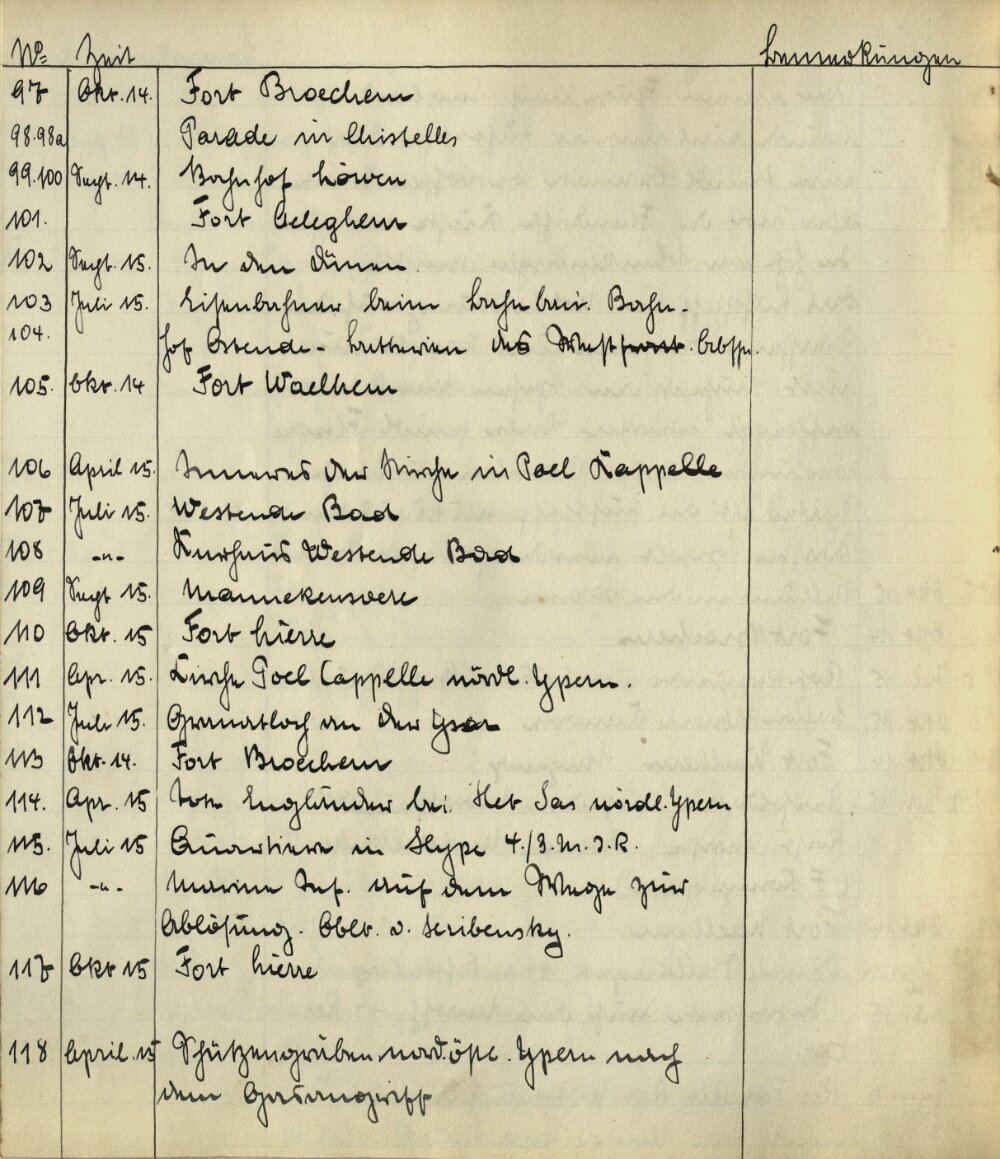 No Zeit Bemerkungen
97 Okt. 14. Fort Broechem
98.98a Parade in Ghistelles
99.100 Sept. 14. Bahnhof Löwen
101. Fort Oeleghem
102 Sept. 15. In den Dünen.
103 Juli 15. Eisenbahner beim bei. Bahn-
104. hof Ostende - Batterien des West
105. Okt. 14 Fort Waelhem
106 April 15. Inneres der Kirche in Poel Kappelle
107 Juli 15. Westende Bad
108 -„- Kurhaus Westende Bad
109 Sept 15. Mannekensvere
110 Okt. 15 Fort Lierre
111 Apr. 15. Kirche Poel Cappelle nördl. Ypern.
112 Juli 15. Granatloch an der Yser
113 Okt. 14. Fort Broechem
114. Apr. 15 Tote Engländer bei. Het Sas nördl. Ypern
115. Juli 15 Quartiere in Slype 4./3. M.I.R.
116 -„- Marine Inf. auf dem Wege zur
Ablösung. Oblt. v.
117 Okt 15 Fort Lierre
118 April. 15 Schützengräben nordöstl. Ypern nach
dem Gasangriff